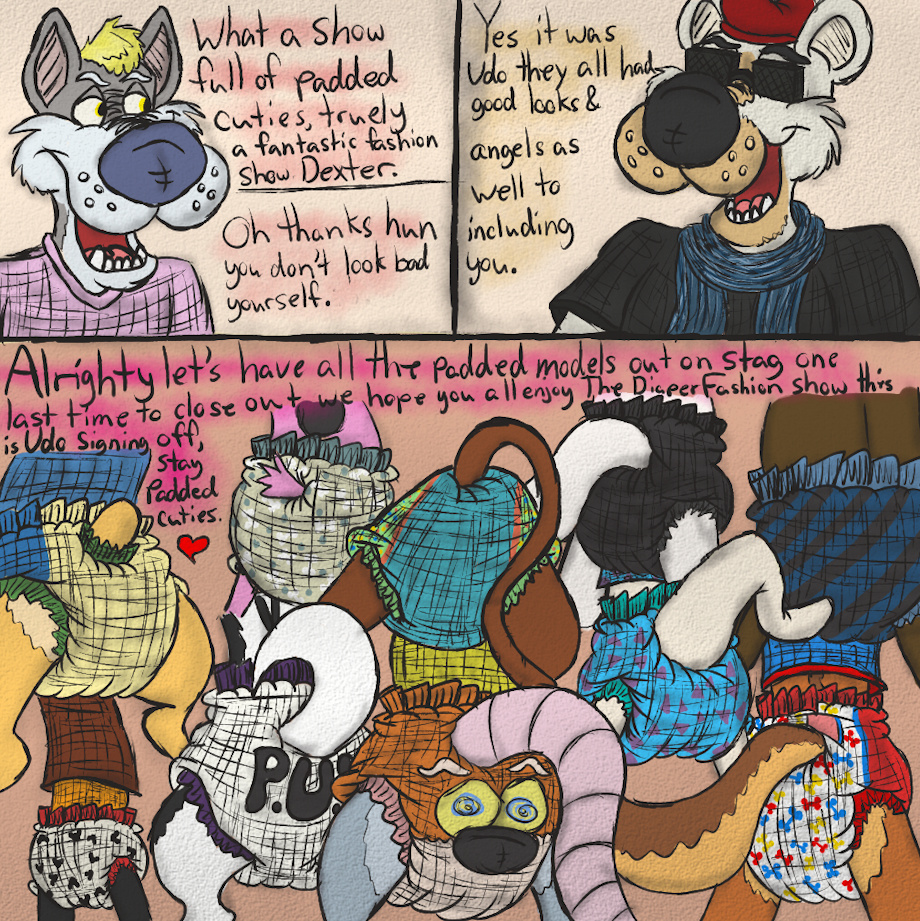 What a show
full of padded
cuties, truely
a fantastic fashion
show Dexter.
Oh thanks hun
you don't look bad
yourself.
Yes it was
Udo they all had
good looks &
angels as
well to
including
you.
Alrighty let's have all the padded models out on stag one
last time to close out we hope you all enjoy The Diaper Fashion show this
is Udo Signing off,
stay
Padded
cuties.
P.U.